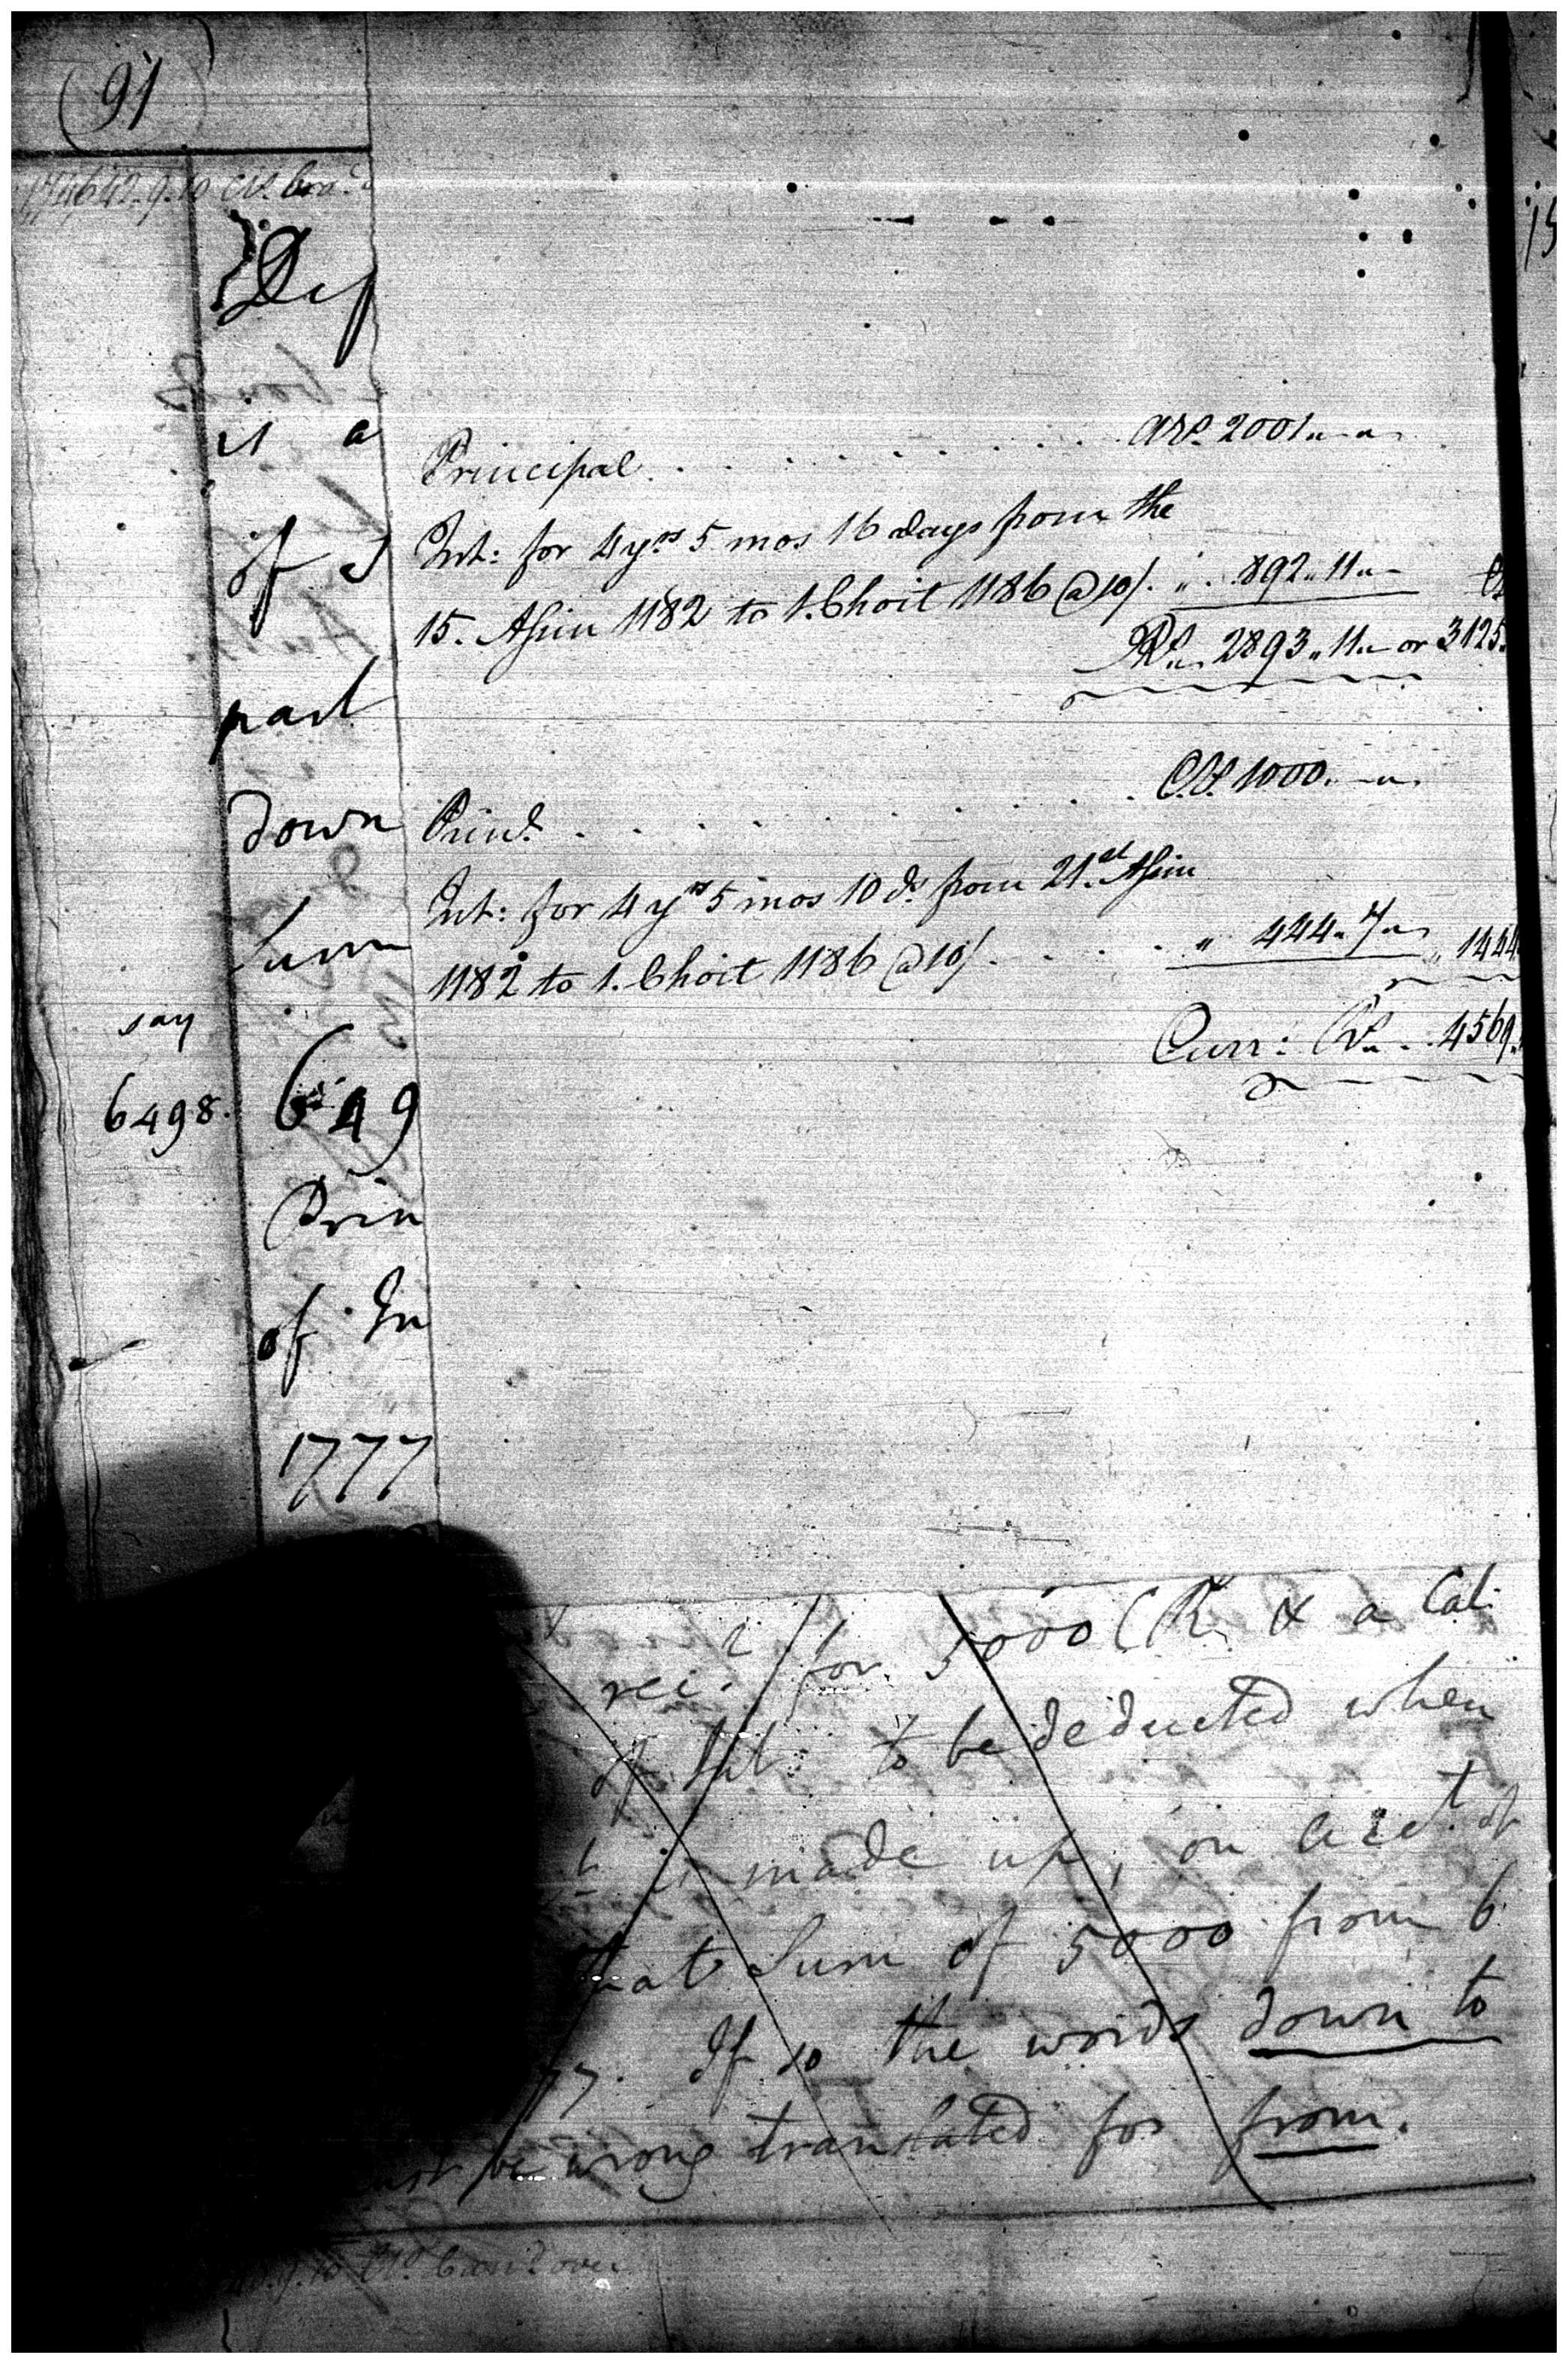 (91)
Dep
is a
of
part
down
Sum
say
6498. 649
Prin
of In
1777
Principal . . . . . . . . ARs 2001.. — ..
Int: for 4 yrs 5 mos 16 days from the
15. Assin 1182 to 1. Choit 1186 @ 10/. " . 892.. 11.. —
Rs.. 2893.. 11.. — or 3125.
Prinl. . . . . . . . . C.Rs. 1000. — ..
Int: for 4 yrs 5 mos 10 ds from 21st Assin
1182 to 1. Choit 1186 @ 10/. . . . . " 444.. 7.. " 1444
Curr: Rs.. . 4569.
recd. for 5000 CRs & a Cal:
of Int: to be deducted when
it is made up, on acct. of
that Sum of 5000 from 6
77. If so the words down to
must be wrong translated for from.
Carrd. over